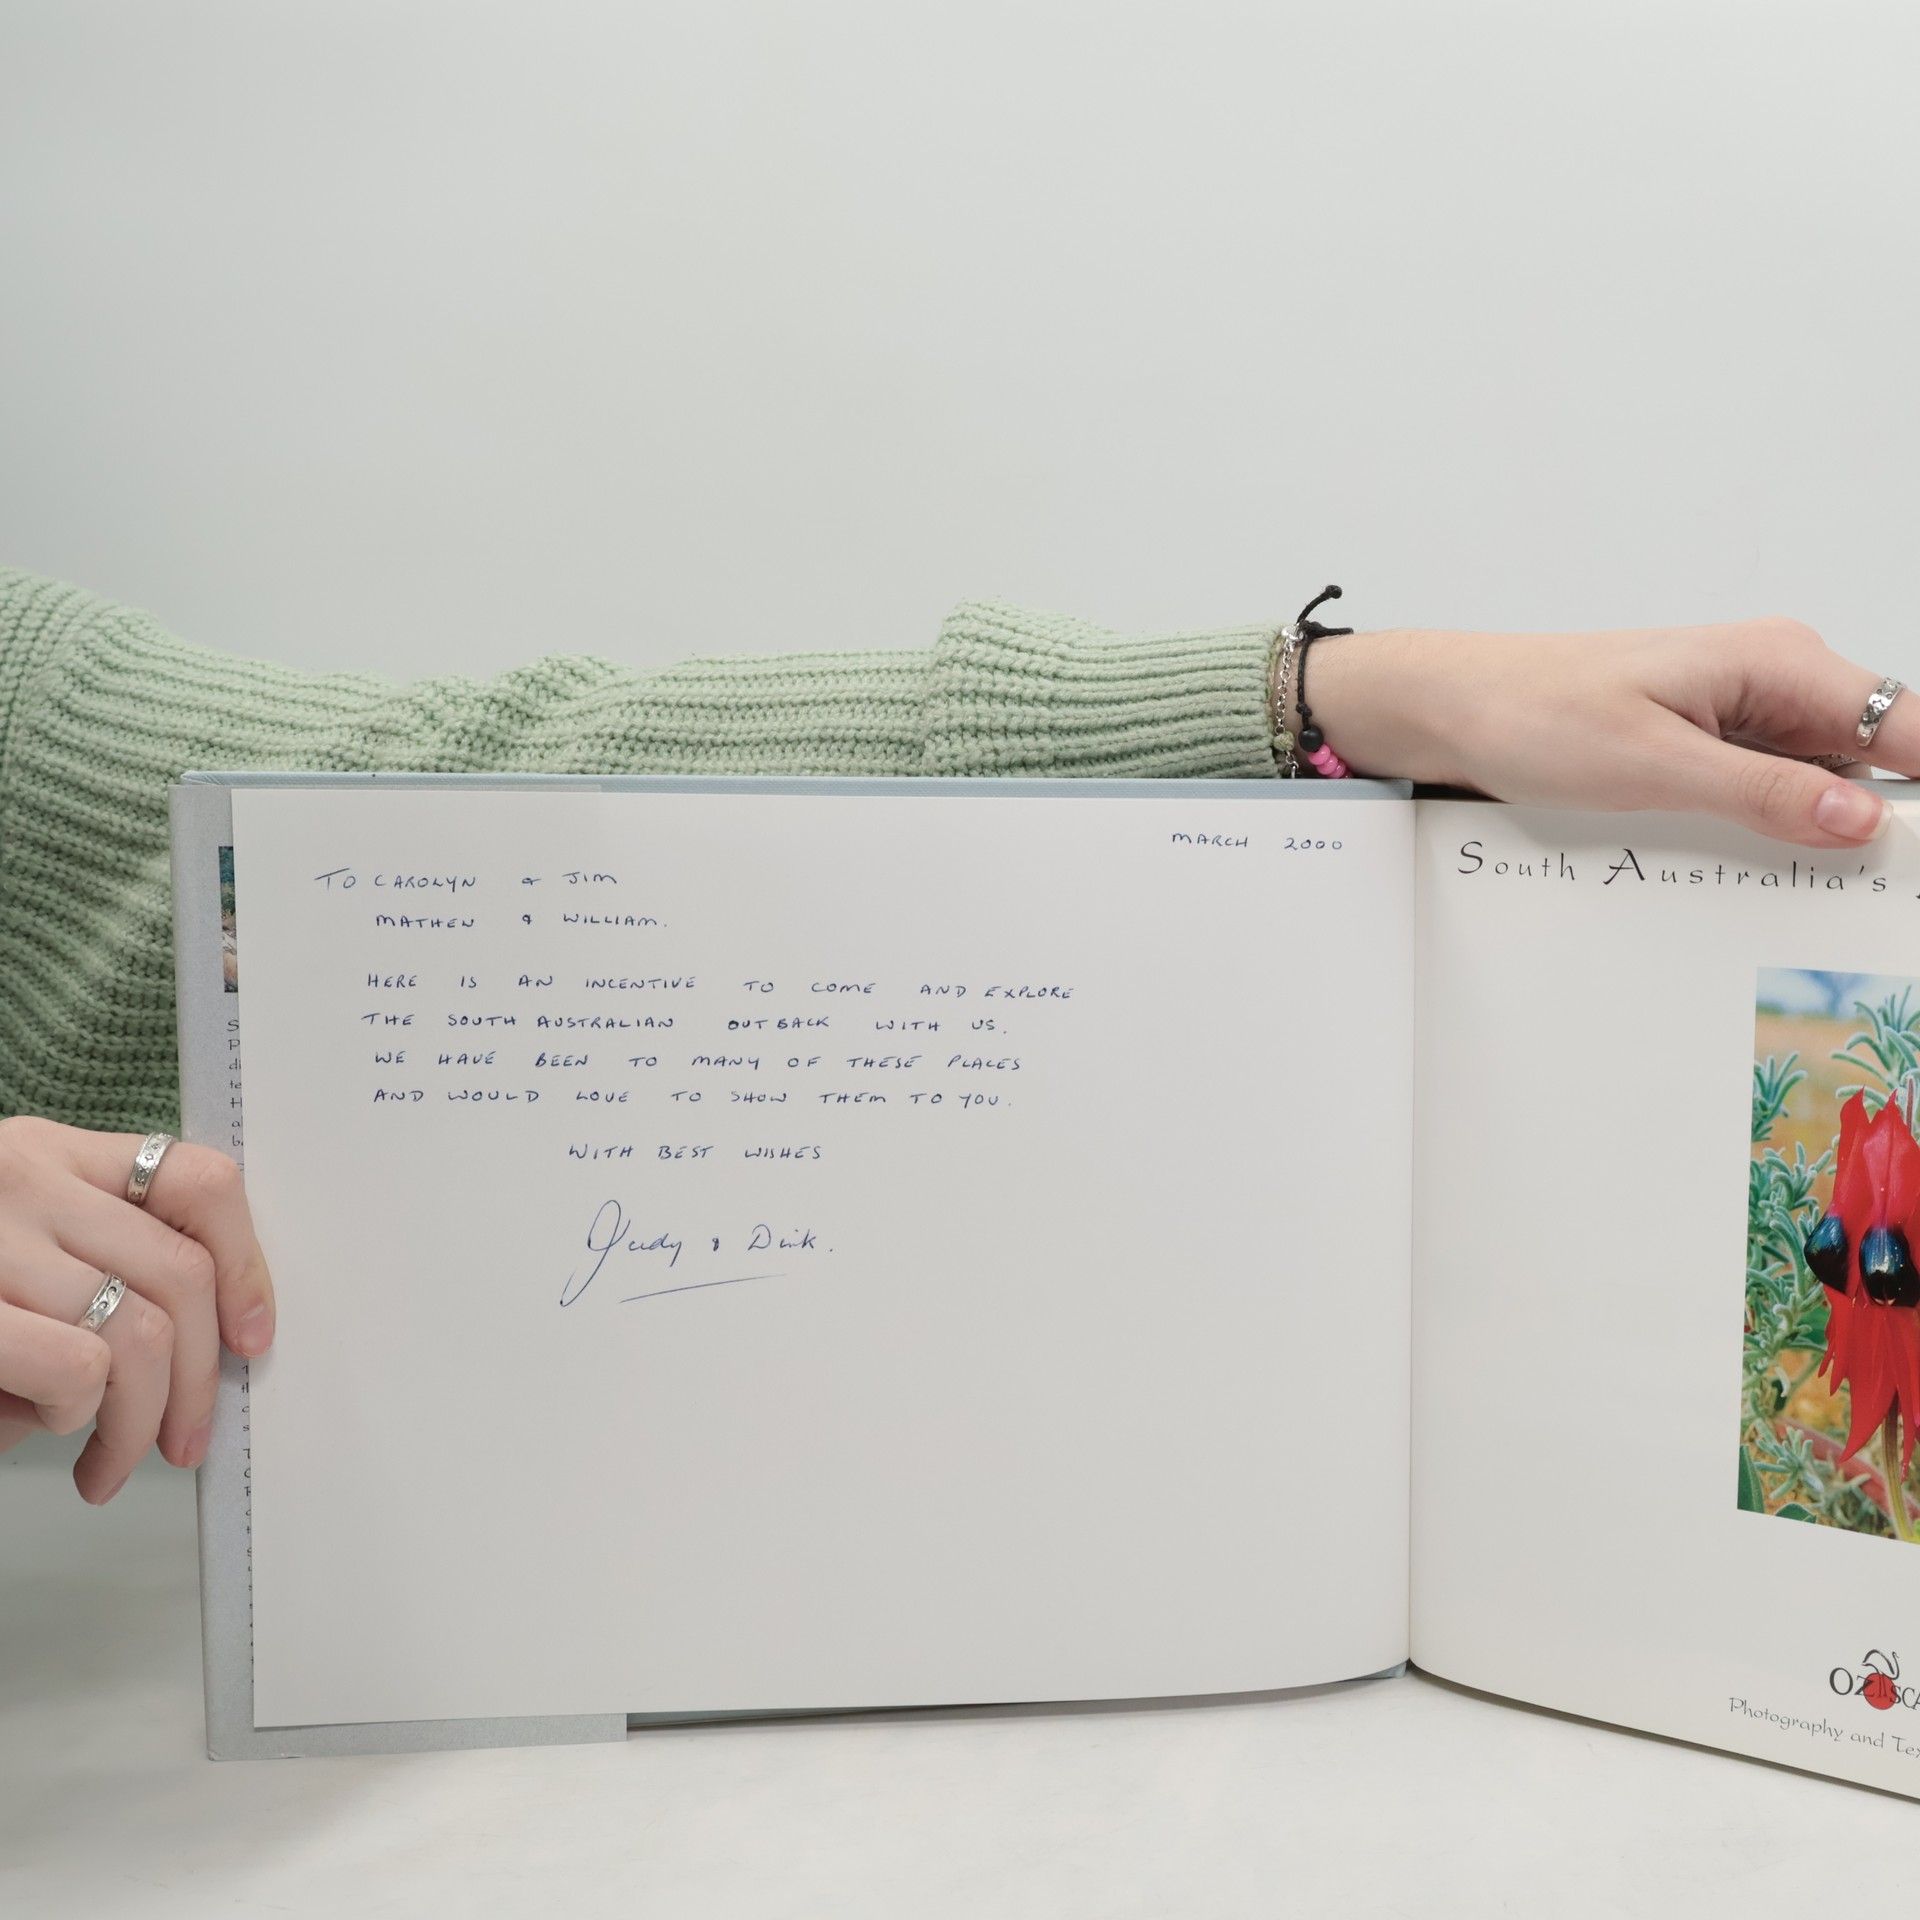 MARCH 2000
TO CAROLYN & JIM
MATHEW & WILLIAM.
HERE IS AN INCENTIVE TO COME AND EXPLORE
THE SOUTH AUSTRALIAN OUTBACK WITH US.
WE HAVE BEEN TO MANY OF THESE PLACES
AND WOULD LOVE TO SHOW THEM TO YOU.
WITH BEST WISHES
Judy & Dirk.
South Australia's
OZ SCA
Photography and Tex